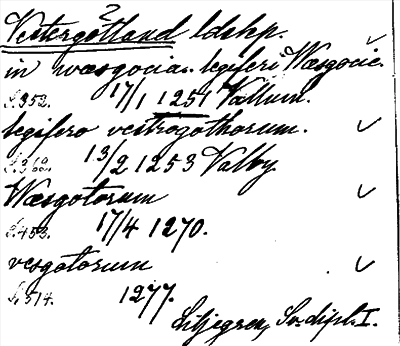 2
Vestergötland ldshp.
in wæsgocia. legiferi Wæsgocie.
S. 353. 17/1 1251 Vallum.
legifero vestrogothorum.
S. 362. 13/2 1253 Valby.
Wæsgotorum
S. 453. 17/4 1270.
vesgotorum
S. 514. 1277.
Liljegren, Sv. dipl. I.